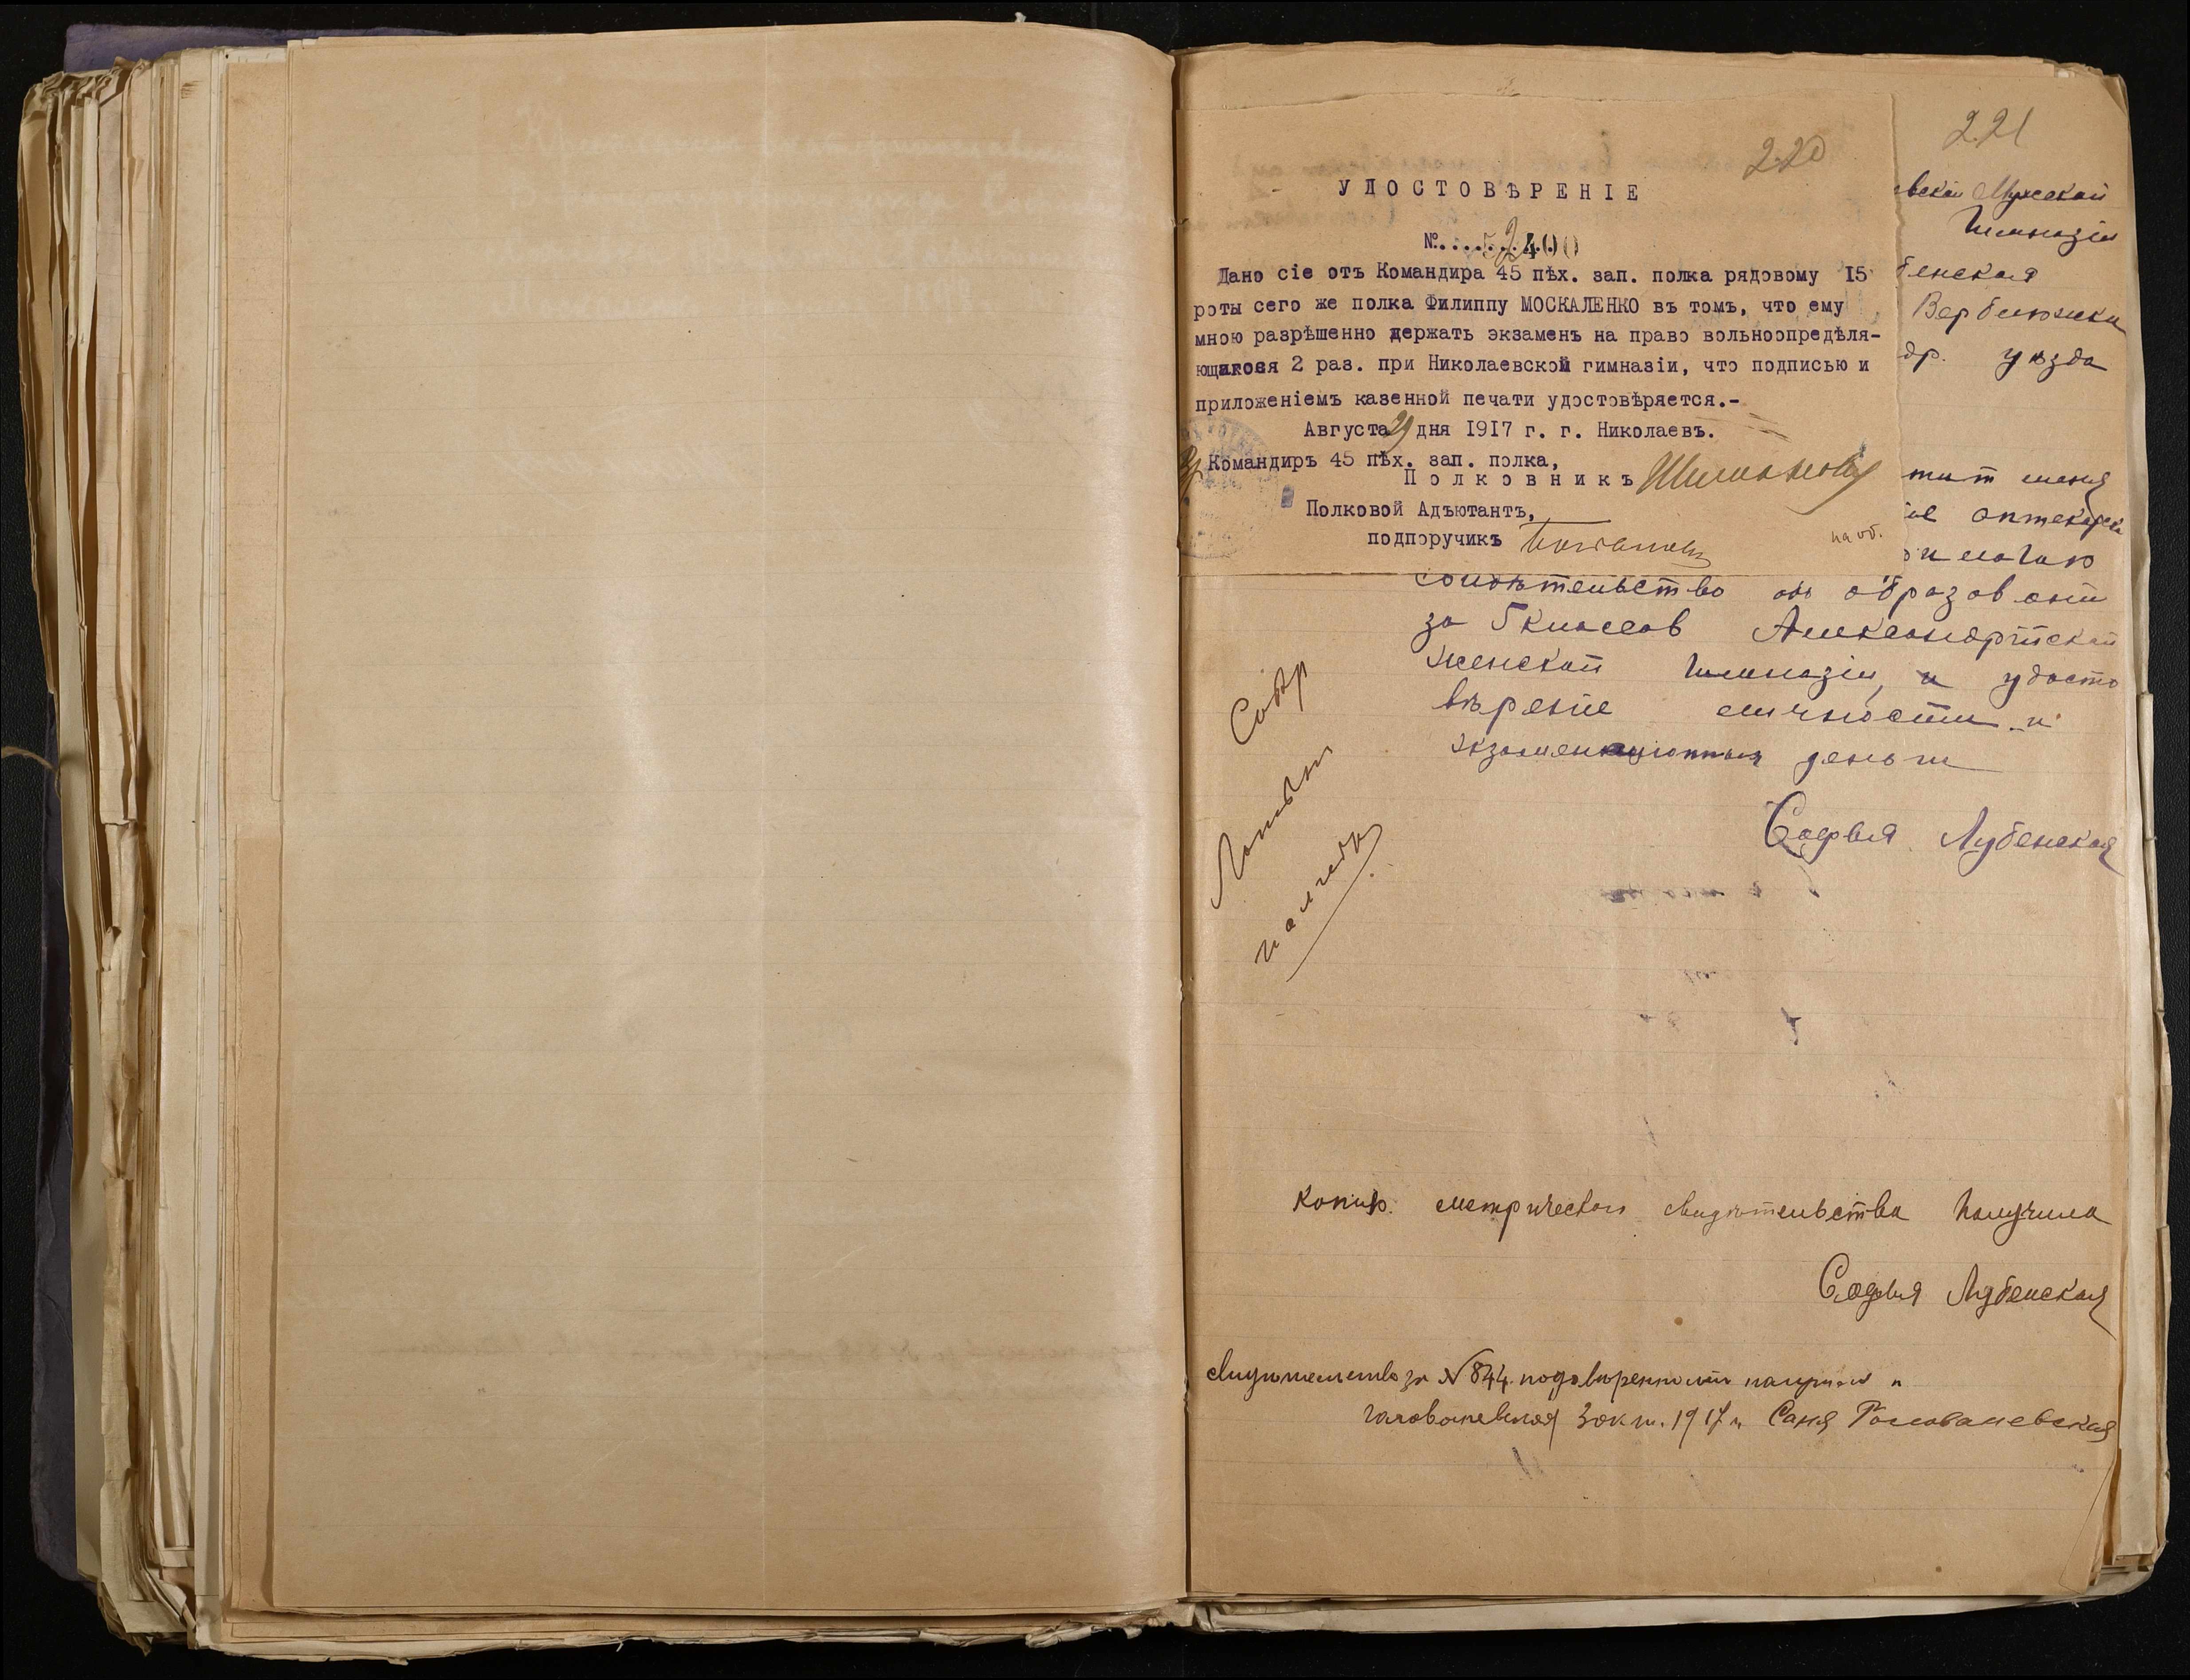 220
УДОСТОВѢРЕНІЕ
№ 52400
Дано сіе отъ Командира 45 пѣх. зап. полка рядовому 15
роты сего же полка Филиппу МОСКАЛЕНКО въ томъ, что ему
мною разрѣшенно держать экзаменъ на право вольноопредѣля-
ющагося 2 раз. при Николаевской гимназіи, что подписью и
приложеніемъ казенной печати удостовѣряется.-
Августа 29 дня 1917 г. г. Николаевъ.
Командиръ 45 пѣх. зап. полка,
Полковникъ
Полковой Адъютантъ,
подпоручикъ
на об.
221
вской Мужской
Гимназіи
бенская
Вербиюжки
др. уѣзда
тит меня
оптекарск
илагаю
свидѣтельство объ образовоніи
за 5 классов Александрійской
Женской Гимназіи, и удосто
вѣреніе личности и
экзаменаціонныя деньги
Софья Лубенская
Копию метрическаго свидѣтельства получила
Софья Лубенская
Свидѣтельство за № 844 по довѣренности получила
Голованевская 3 окт. 1917 г. Саня Голованевская